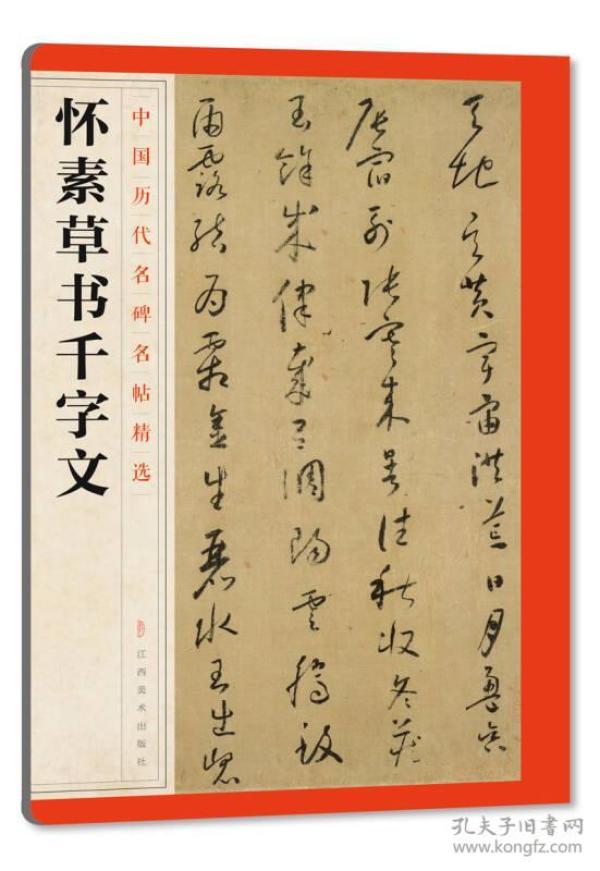 怀素草书千字文
中国历代名碑名帖精选
江西美术出版社
天地玄黃宇宙洪荒日月盈昃
辰宿列張寒來暑往秋收冬藏
閏餘成律歲呂調陽雲騰致
雨露結為霜金生麗水玉出崐
孔夫子旧书网
www.kongfz.com